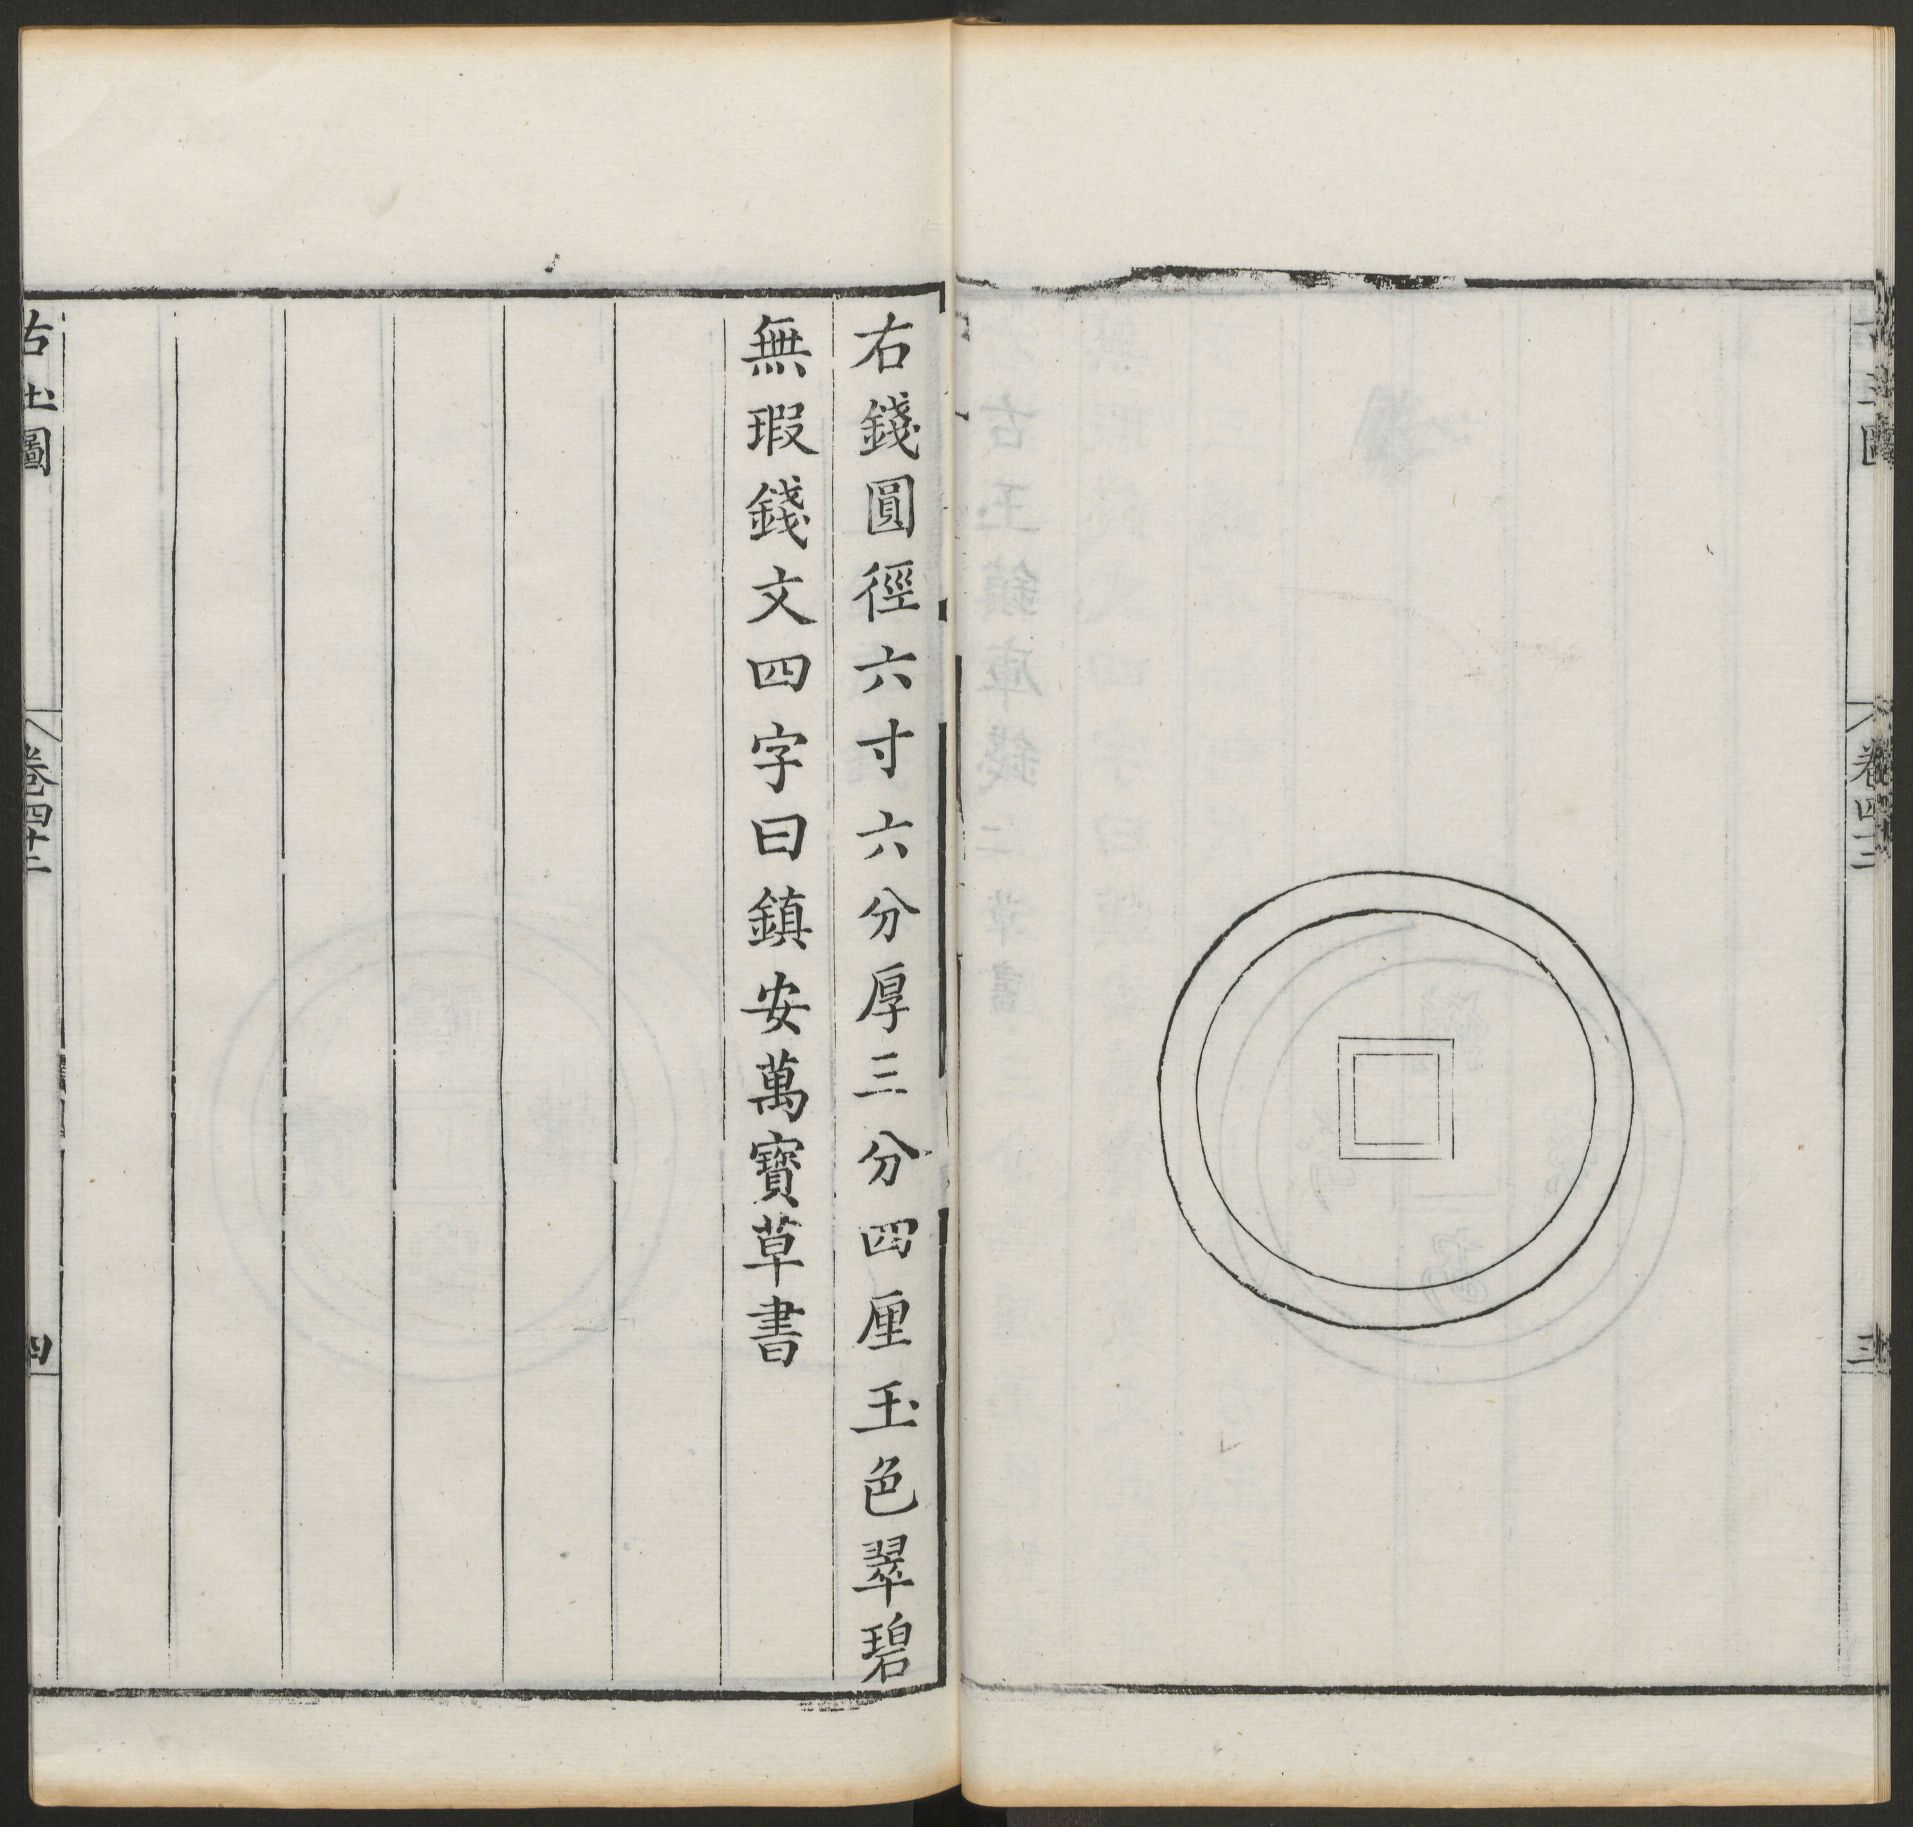 古玉圖
卷四十二
三
右錢圓徑六寸六分厚三分四厘玉色翠碧
無瑕錢文四字曰鎮安萬寶草書
古玉圖
卷四十二
四